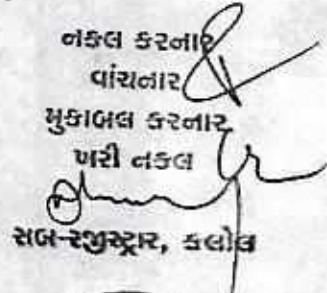 નકલ કરનાર
વાંચનાર
મુકાબલ કરનાર
ખરી નકલ
સબ-રજીસ્ટ્રાર, કલોલ